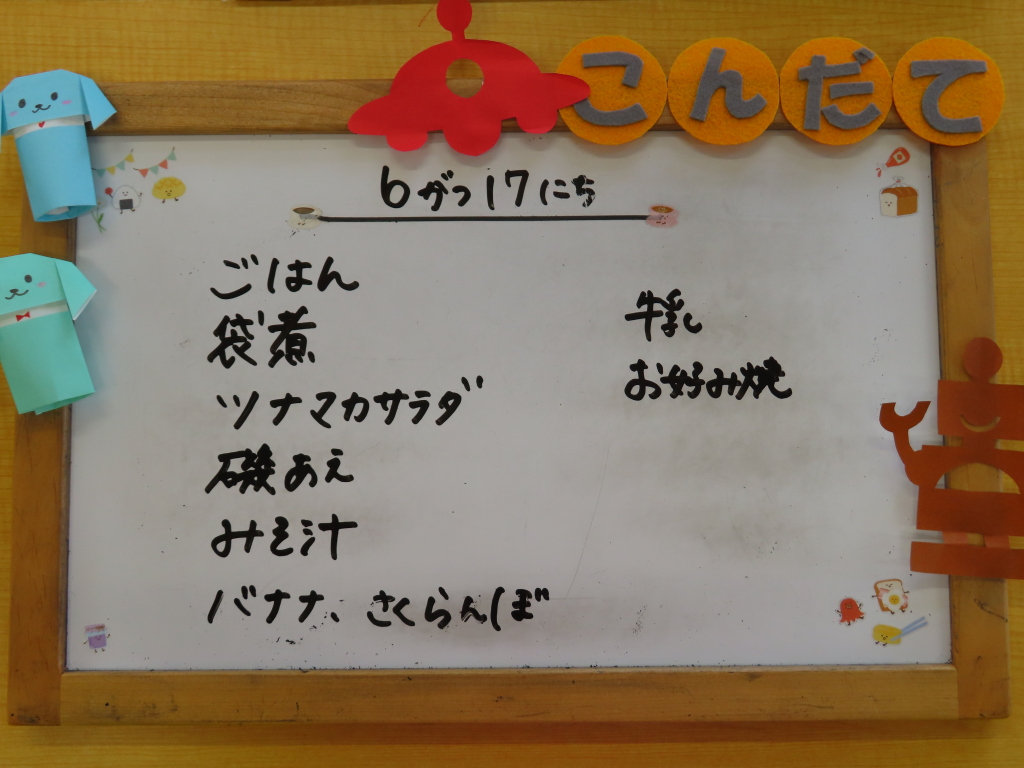 こんだて
6がつ17にち
ごはん
袋煮
ツナマカサラダ
磯あえ
みそ汁
バナナ、さくらんぼ
牛乳
お好み焼